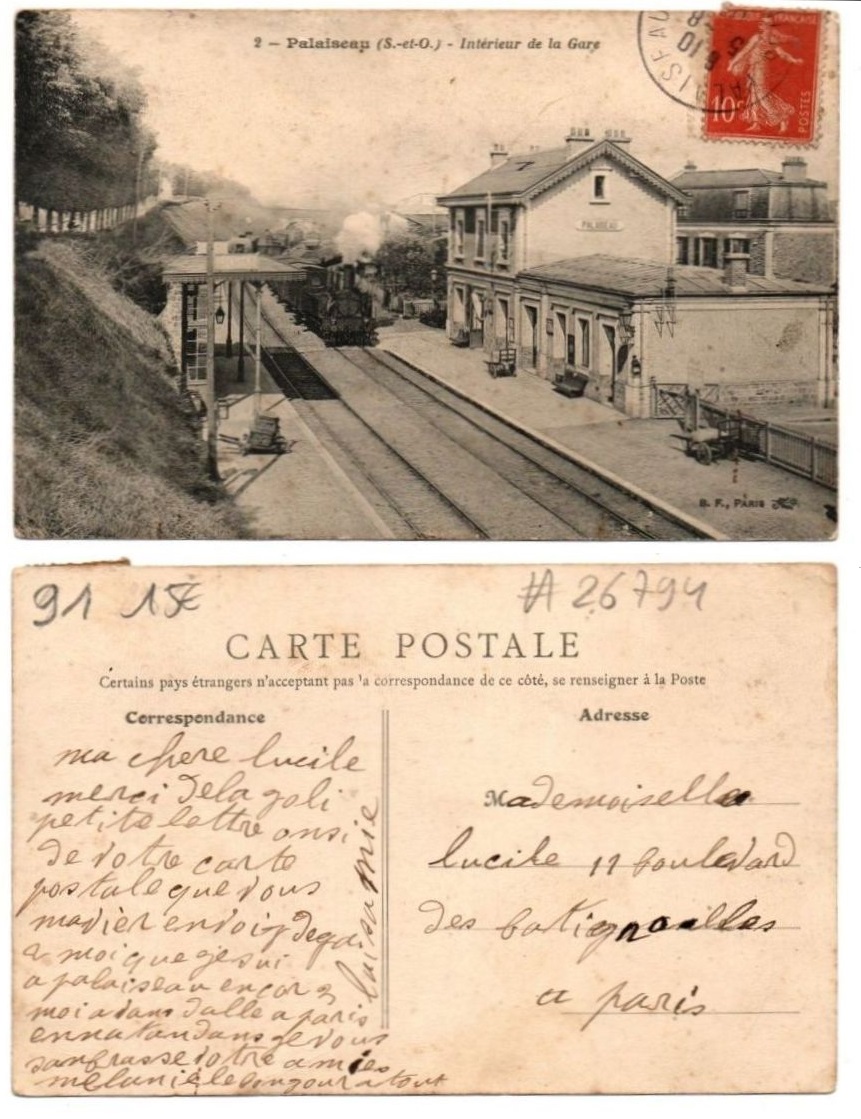 2 – Palaiseau (S.-et-O.) - Intérieur de la Gare
PALAISEAU
10c
POSTES
PALAISEAU
B. F., PARIS
91 15€
#26794
CARTE POSTALE
Certains pays étrangers n'acceptent pas la correspondance de ce côté, se renseigner à la Poste
Correspondance
ma chere lucile
merci dela goli
petite lettre onsi
de votre carte
postale que vous
mavier envoiy deja
a moi que ge sui
a palaiseau encor 2
moi avans dalle a paris
ennatandans ge vous
sanbrasse votre amies
melanie le bongour a tout
Adresse
Mademoiselle
lucile 11 boulevard
des batignolles
a paris